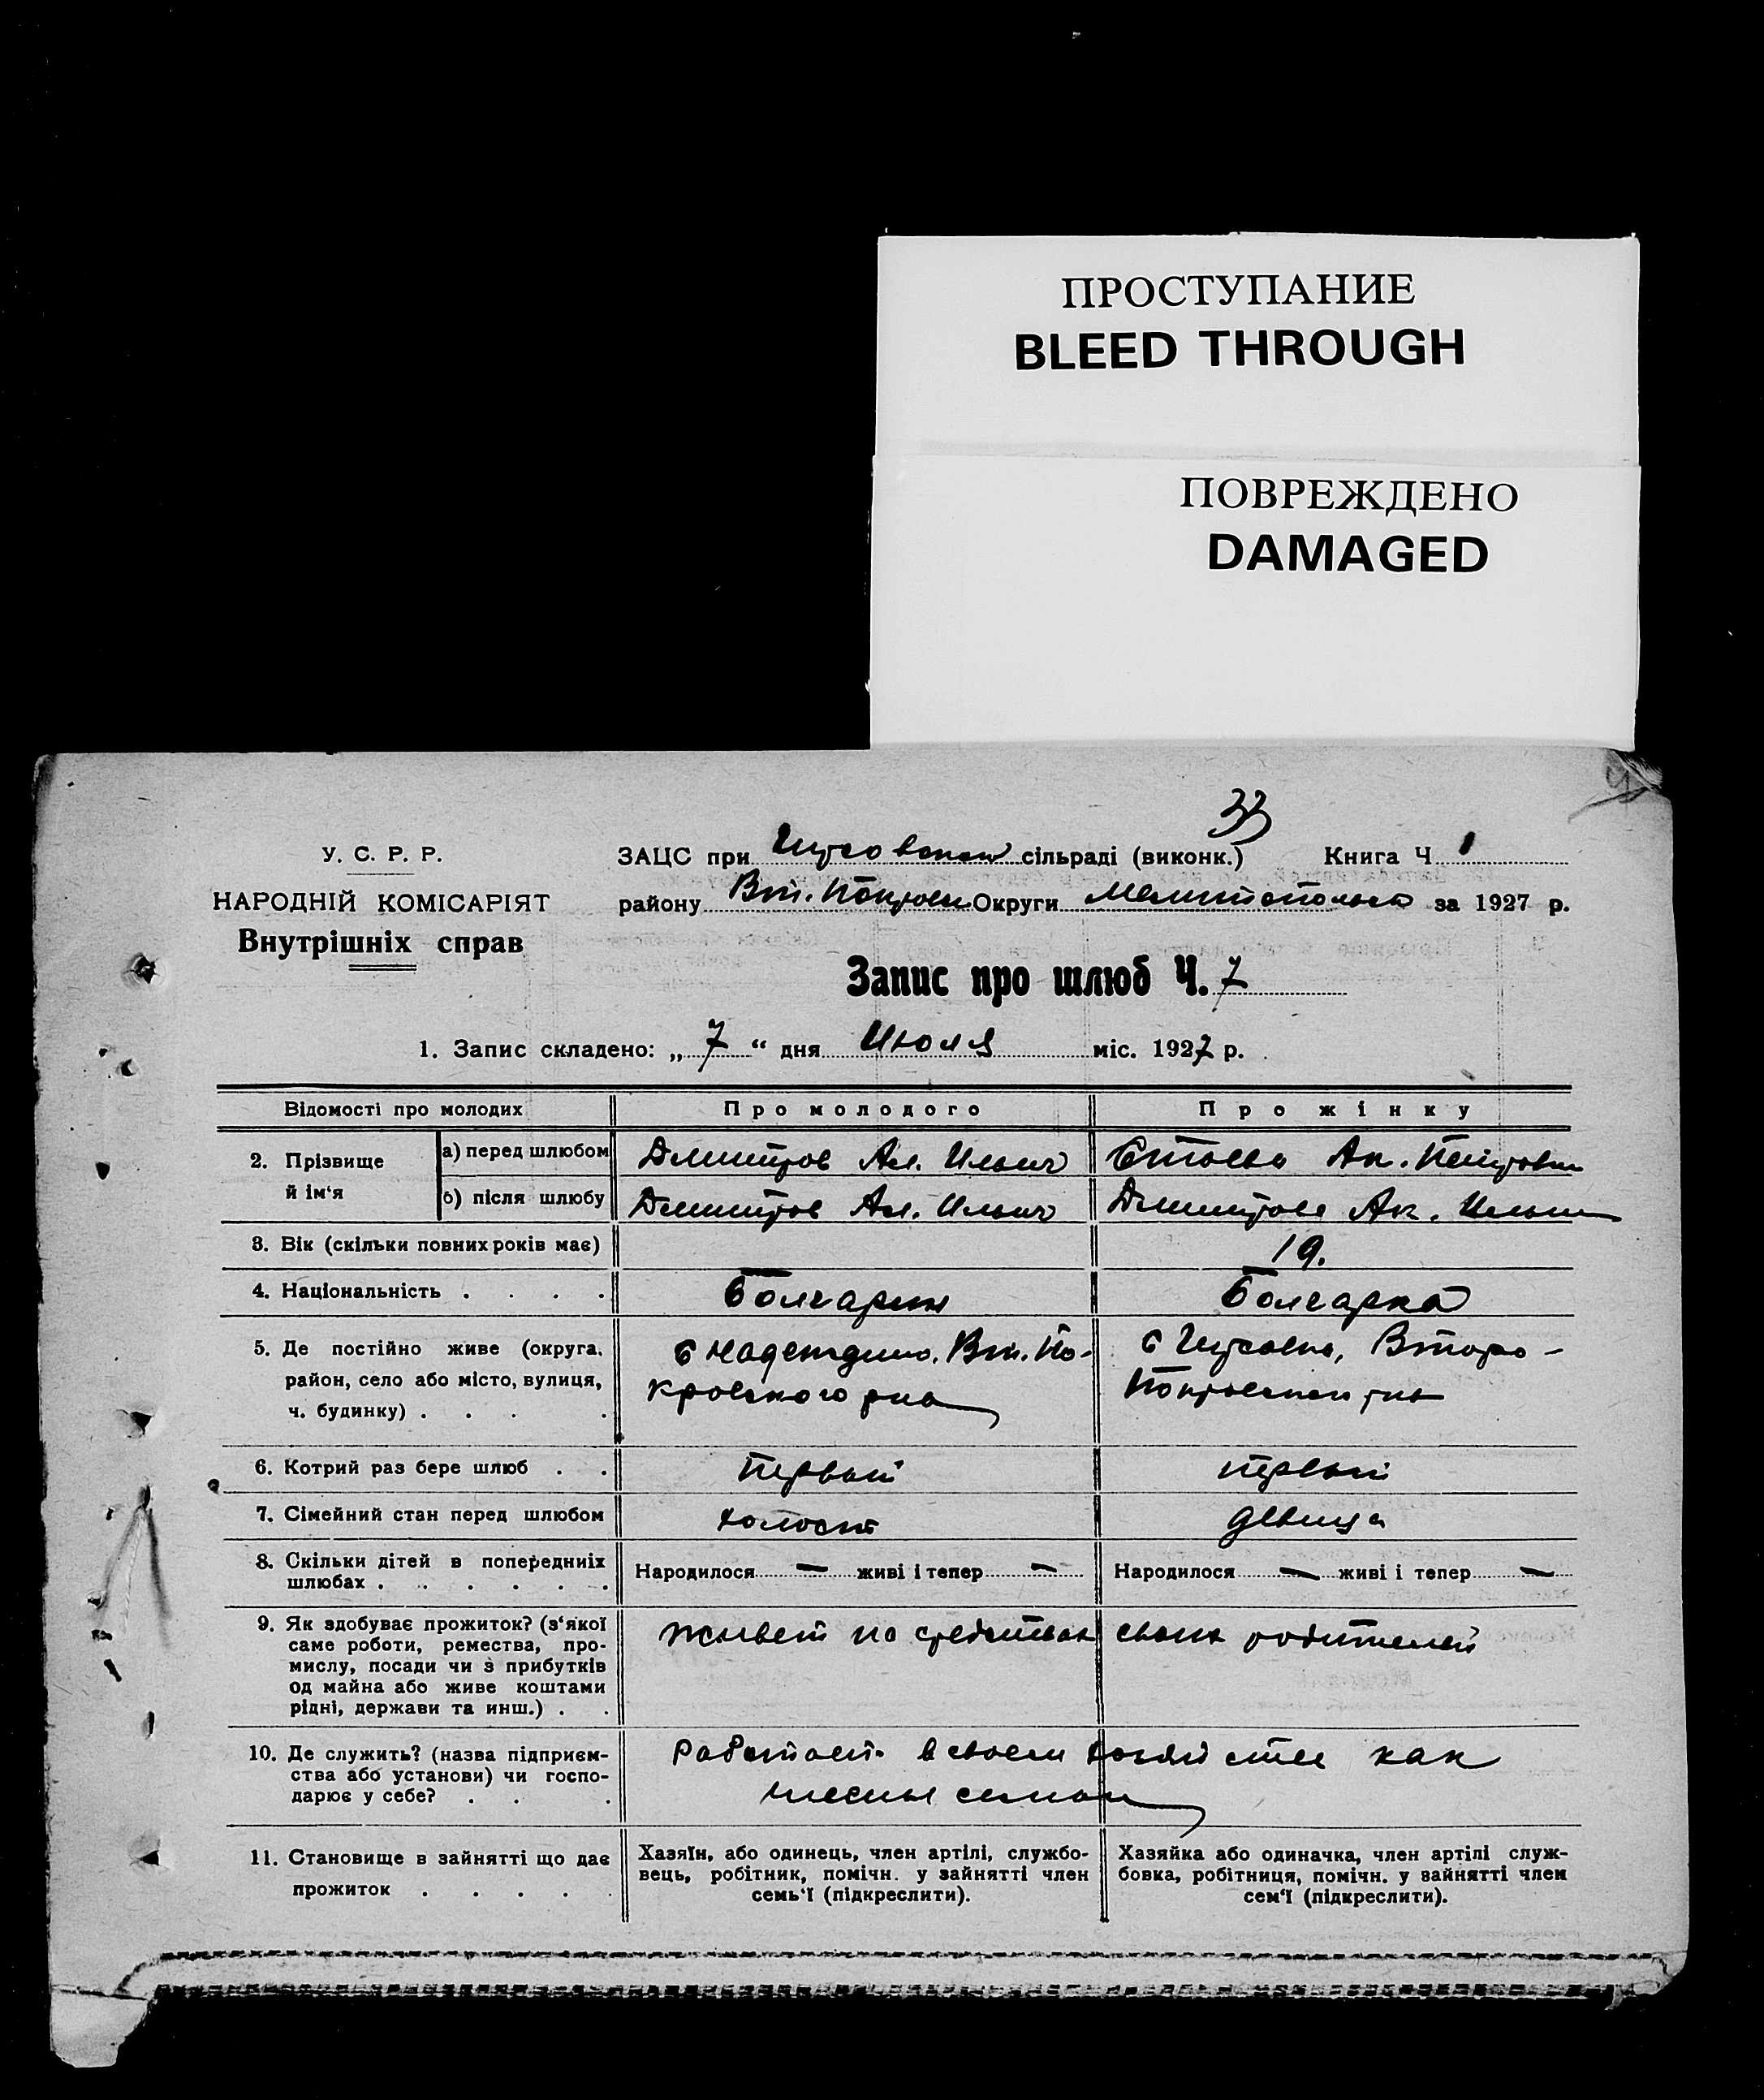 ПРОСТУПАНИЕ
BLEED THROUGH
ПОВРЕЖДЕНО
DAMAGED
33
У. С. Р. Р.
ЗАЦС при сільраді (виконк.) Книга Ч 1
НАРОДНІЙ КОМІСАРІЯТ
району Вт. Покровск Округи Мелитопольск за 1927 р.
Внутрішніх справ
Запис про шлюб Ч. 7
1. Запис складено: „ 7 “ дня Июля міс. 1927 р.
Відомості про молодих
Про молодого
Про жінку
2. Прізвище й ім‘я
а) перед шлюбом
Димитров Ал. Ильич
Стоева Ак. Петровн
б) після шлюбу
Димитров Ал. Ильич
Димитрова Ак.
3. Вік (скільки повних років має)
19.
4. Національність . . . .
Болгарин
Болгарка
5. Де постійно живе (округа,
район, село або місто, вулиця,
ч. будинку) . . . .
с Надеждино. Вт. По-
кровского рна
с Второ-
Покровского рна
6. Котрий раз бере шлюб . .
Первый
первый
7. Сімейний стан перед шлюбом
холост
девица
8. Скільки дітей в попередніх
шлюбах . . . . . .
Народилося — живі і тепер —
Народилося — живі і тепер —
9. Як здобуває прожиток? (з‘якої
саме роботи, ремества, про-
мислу, посади чи з прибутків
од майна або живе коштами
рідні, держави та инш.) . .
живет на средствах своих родителей
10. Де служить? (назва підприєм-
ства або установи) чи госпо-
дарює у себе? . . .
Работает в своем хозяйстве как
члены семьи
11. Становище в зайнятті що дає
прожиток . . . . .
Хазяїн, або одинець, член артілі, службо-
вець, робітник, помічн. у зайнятті член
семь‘ї (підкреслити).
Хазяйка або одиначка, член артілі служ-
бовка, робітниця, помічн. у зайнятті член
сем‘ї (підкреслити).